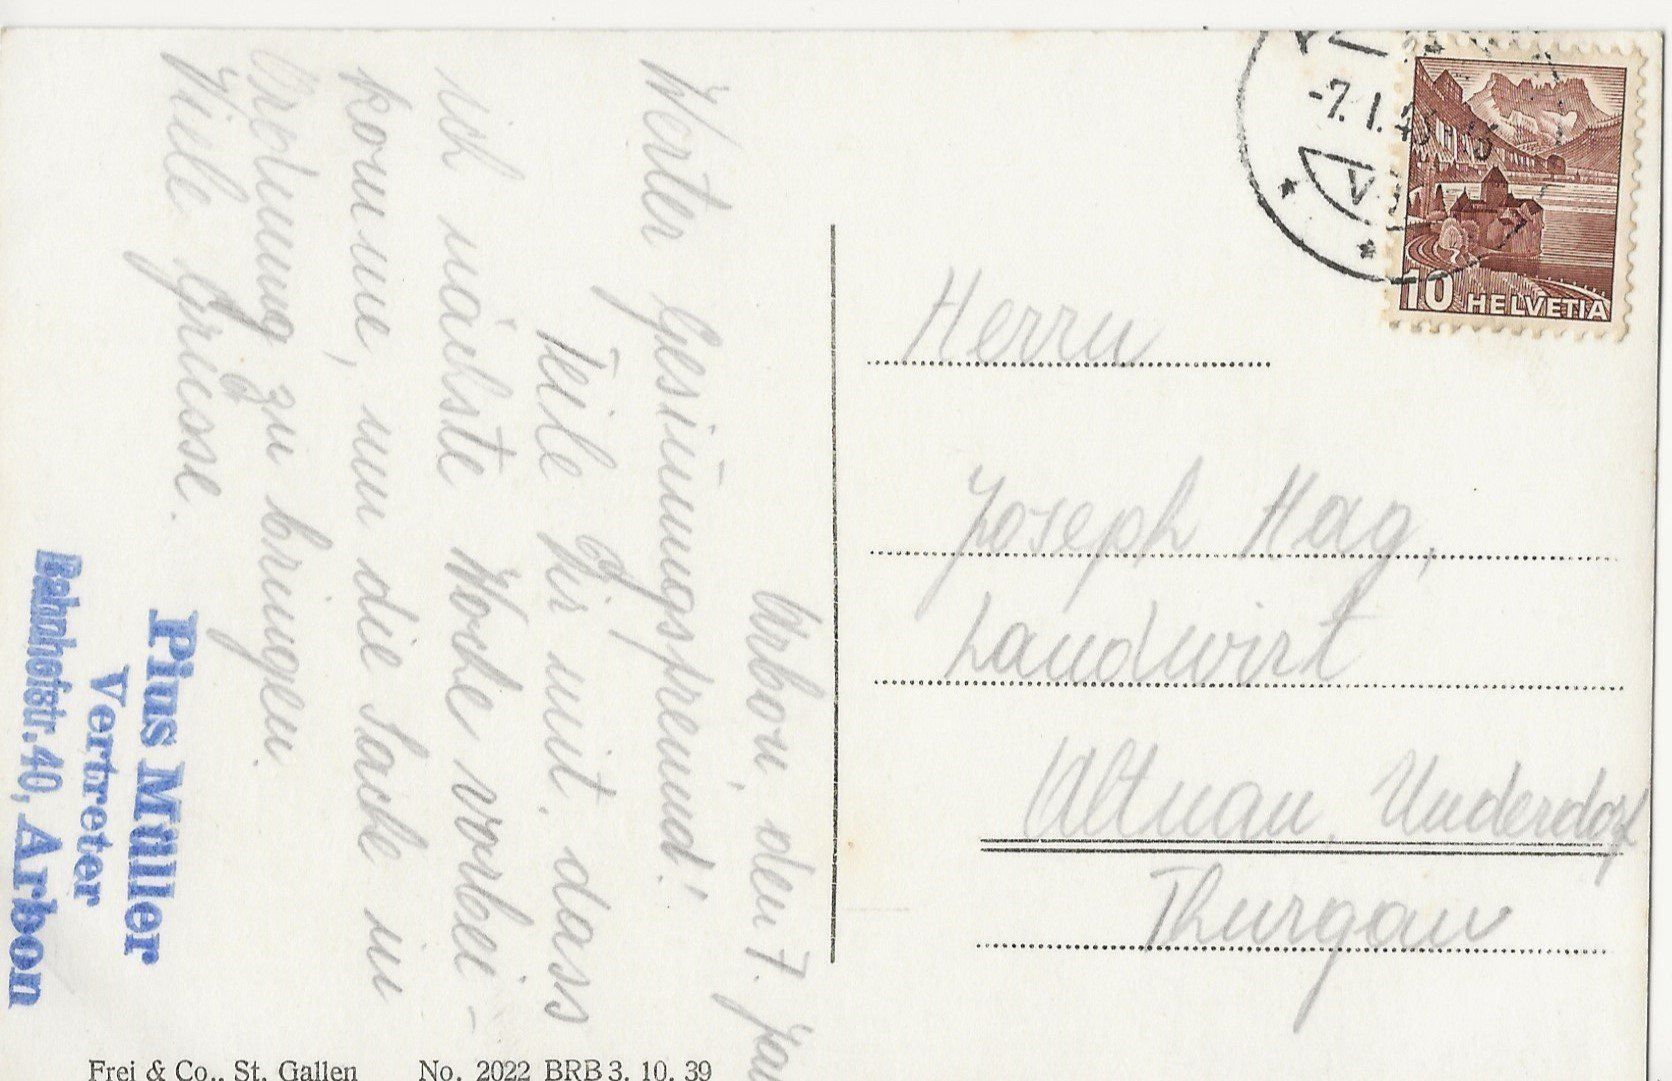 Arbon, den 7. Jan
Werter Gesinnungsfreund!
Teile Ihr mit, dass
ich nächste Woche vorbei-
komme, um die Sache in
Ordnung zu bringen.
Viele Grüsse.
Pius Müller
Vertreter
Bahnhofstr. 40, Arbon
Frei & Co., St. Gallen No. 2022 BRB 3. 10. 39
-7. I. 4
10 HELVETIA
Herrn
Joseph Hag,
Landwirt
Altnau, Underdorf
Thurgau